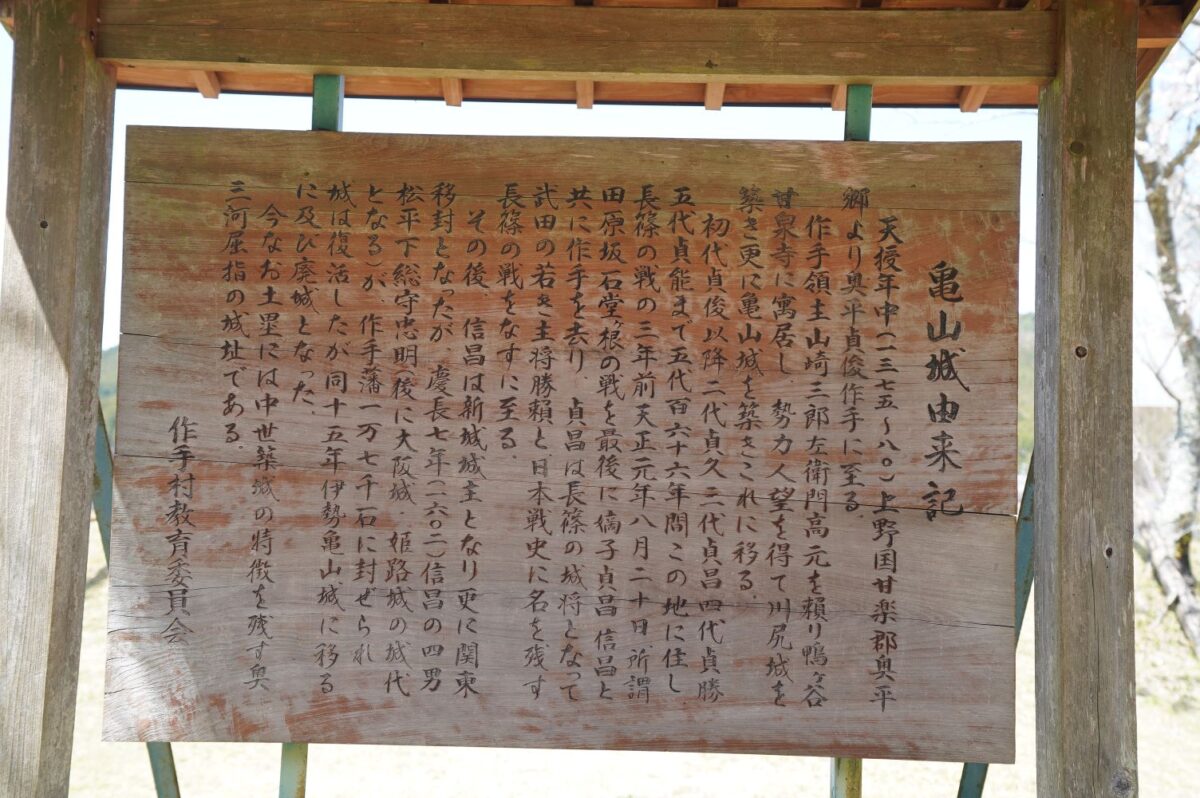 亀山城由来記
天授年中(一三七五〜八〇)上野国甘楽郡奥平
郷より奥平貞俊作手に至る。
作手領主山崎三郎左衛門高元を頼り鴨ヶ谷
甘泉寺に寓居し、勢力人望を得て川尻城を
築き更に亀山城を築きこれに移る。
初代貞俊以降二代貞久三代貞昌四代貞勝
五代貞能まで五代百六十六年間この地に住し
長篠の戦の三年前天正元年八月二十日、所謂
田原坂石堂ヶ根の戦を最後に嫡子貞昌、信昌と
共に作手を去り、貞昌は長篠の城将となって
武田の若き主将勝頼と、日本戦史に名を残す
長篠の戦をなすに至る。
その後、信昌は新城城主となり更に関東
移封となったが、慶長七年(一六〇二)信昌の四男
松平下総守忠明(後に大阪城・姫路城の城代
となる)が、作手藩一万七千石に封ぜられ
城は復活したが同十五年伊勢亀山城に移る
に及び廃城となった。
今なお土塁には中世築城の特徴を残す奥
三河屈指の城址である。
作手村教育委員会